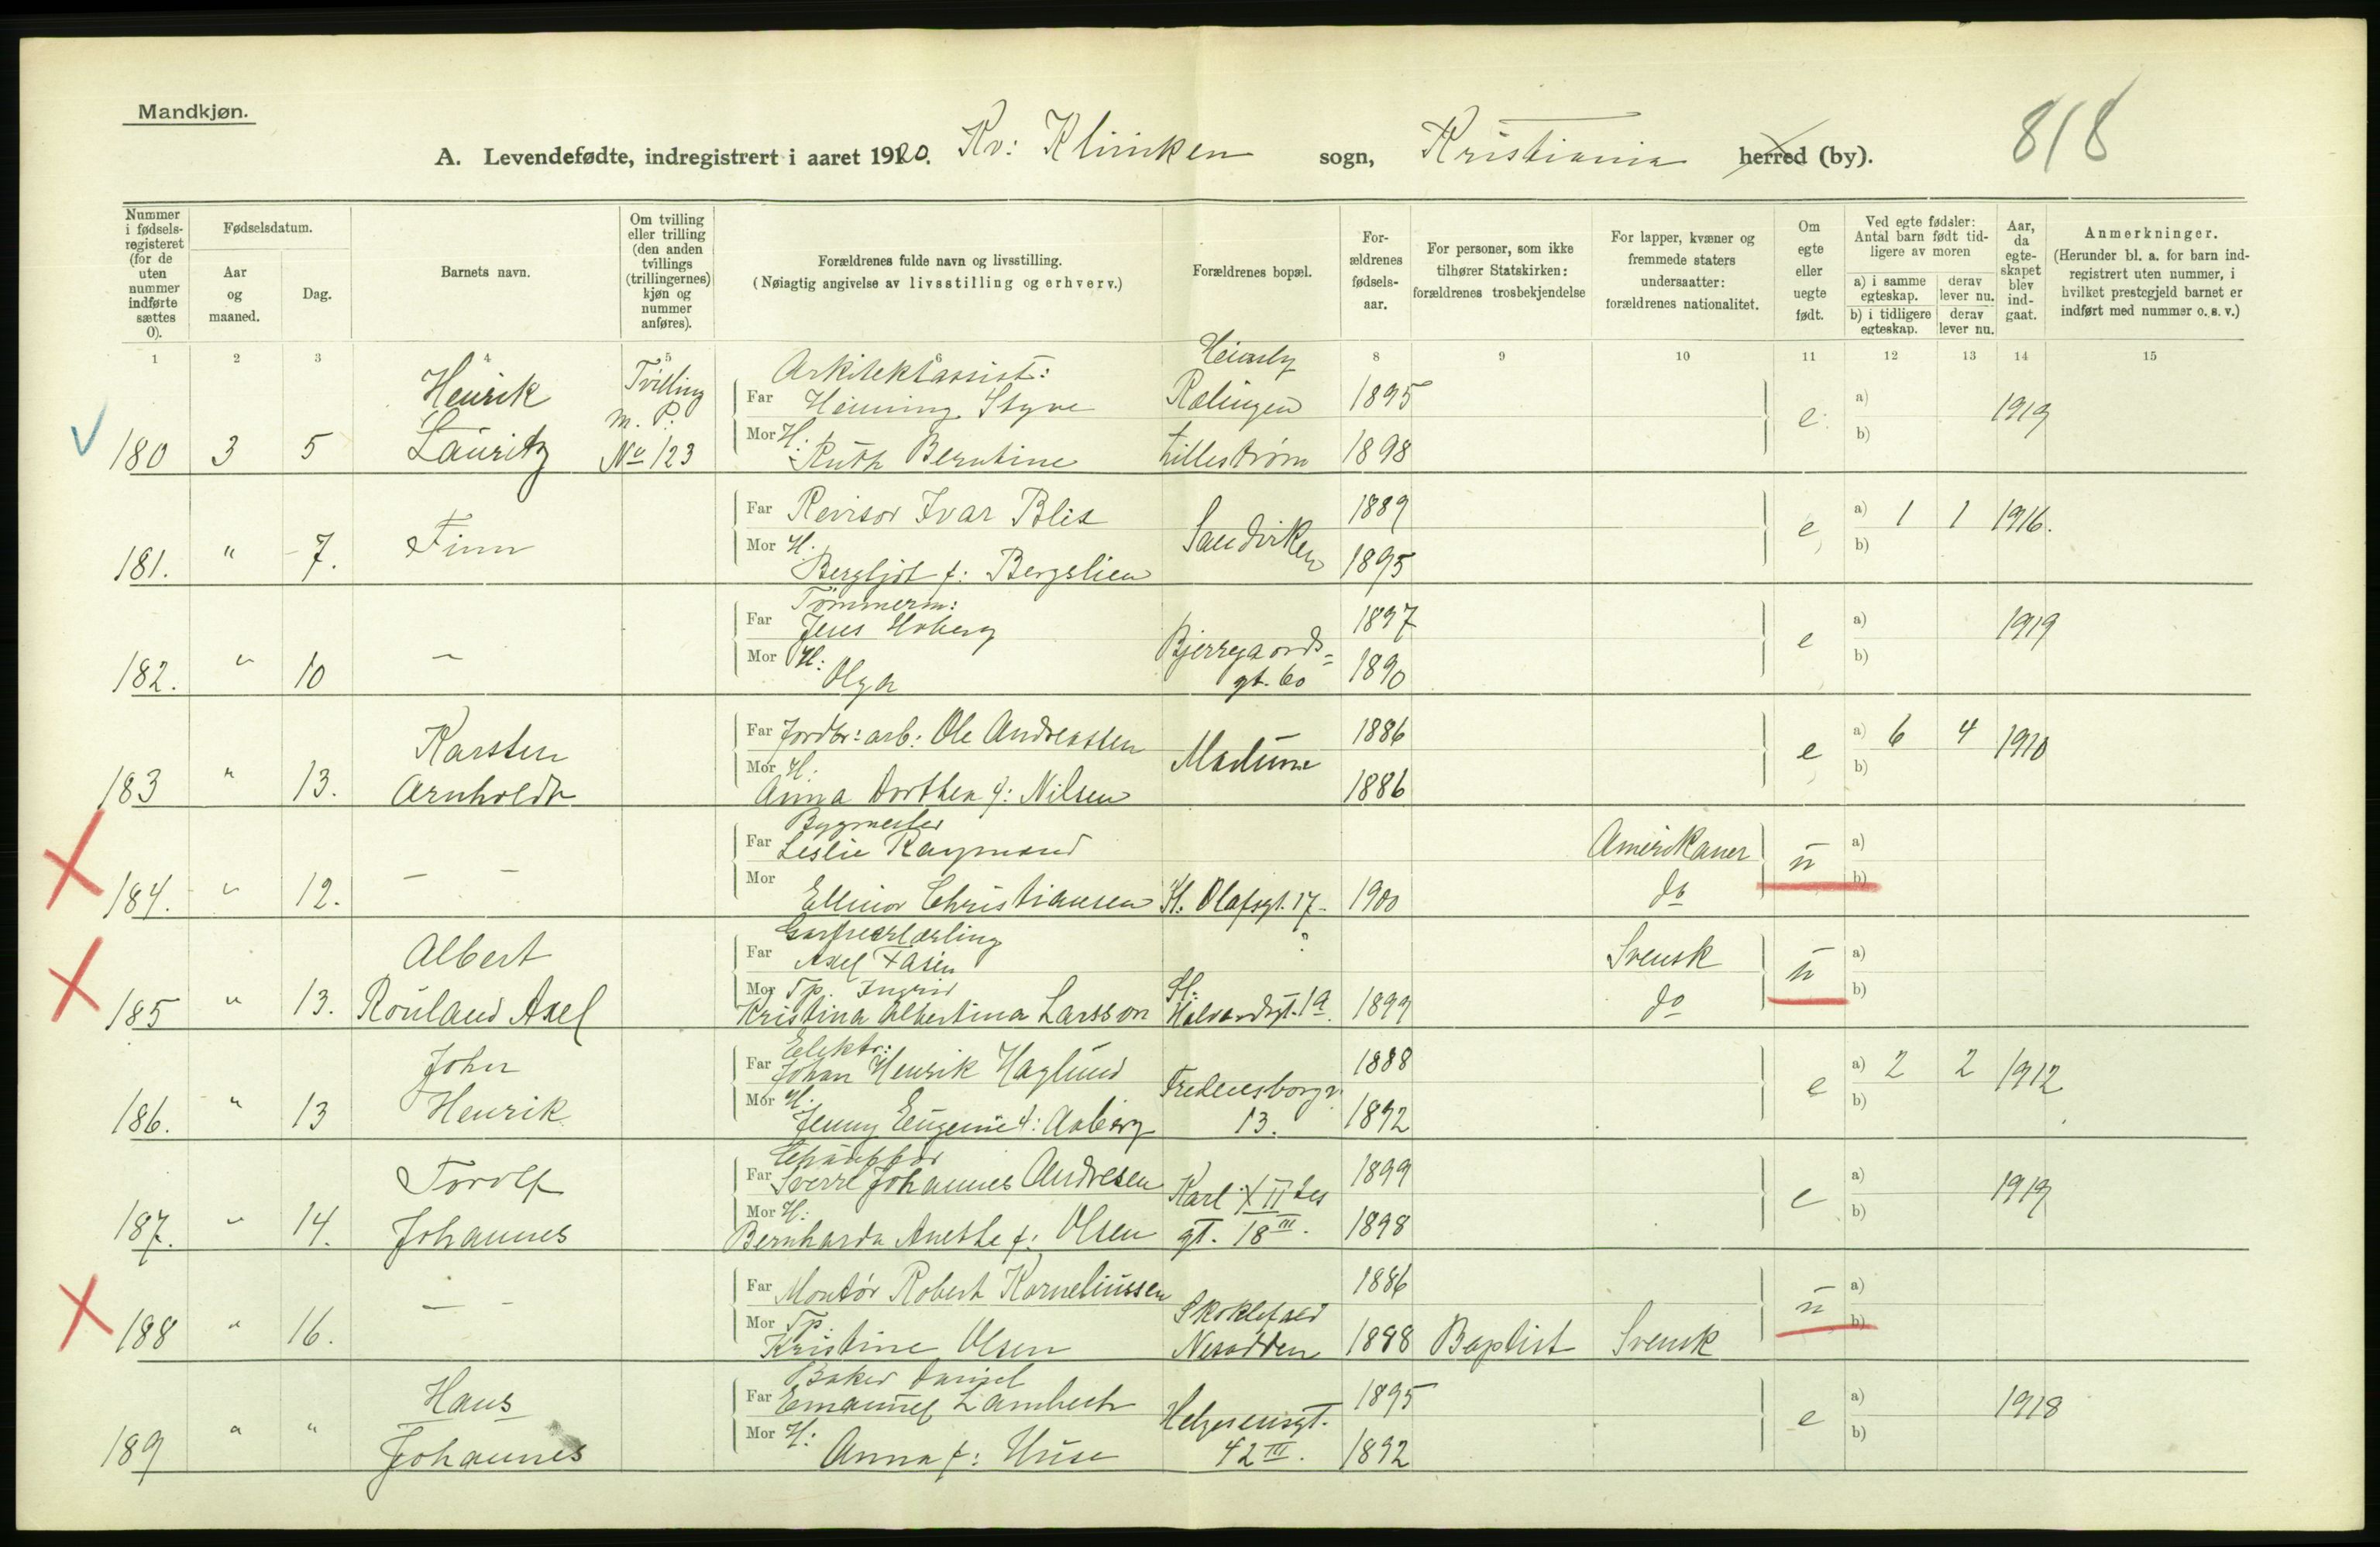 Mandkjøn.
A. Levendefødte, indregistrert i aaret 1920. Kv: Klinikken sogn, Kristiania herred (by). 818
Nummer i fødselsregisteret (for de uten nummer indførte sættes 0).
Fødselsdatum.
Aar og maaned.
Dag.
Barnets navn.
Om tvilling eller trilling (den anden tvillings (trillingernes) kjøn og nummer anføres).
Forældrenes fulde navn og livsstilling.
(Nøiagtig angivelse av livsstilling og erhverv.)
Forældrenes bopæl.
Forældrenes fødselsaar.
For personer, som ikke tilhører Statskirken: forældrenes trosbekjendelse
For lapper, kvæner og fremmede staters undersaatter: forældrenes nationalitet.
Om egte eller uegte født.
Ved egte fødsler: Antal barn født tidligere av moren
a) i samme egteskap. derav lever nu.
b) i tidligere egteskap. derav lever nu.
Aar, da egteskapet blev indgaat.
Anmerkninger.
(Herunder bl. a. for barn indregistrert uten nummer, i hvilket prestegjeld barnet er indført med nummer o. s. v.)
1 2 3 4 5 6 8 9 10 11 12 13 14 15
Henrik Tvilling Arkitektassist:
m. P. Far Henning Styve Rælingen 1895 e. a) b) 1919
180 3 5 Lauritz No 123 Mor H: Ruth Berntine Lillestrøm 1898
Far Revisor Ivar Blix 1889 a) 1 1 1916.
181. " 7. Finn Sandviken e b)
Mor H. Bergljot f: Bergslien 1895
Tømmerm:
Far Jens Hoberg 1897 a) 1919
182. " 10 — Bjerregaards= gt. 60 e b)
Mor H: Olga 1890
Karsten Far Jordbr: arb: Ole Andreassen 1886 a) 6 4 1910
183 " 13. Arnholdt Mor H: Anna Dorthea f: Nilsen Modum 1886 e b)
Bygmester
Far Leslie Raymond Amerikaner u a)
184. " 12. — — Mor Ellinor Christiansen St. Olafsgt. 17 1900 do b)
Albert Far Axel Svensk u a)
185 " 13. Rouland Axel Mor Tp. Ingrid
Kristina Albertina Larsson St. Halvardsgt. 1a. 1899 do b)
Elektr:
John Far Johan Henrik Haglund 1888 a) 2 2 1912
186. " 13 Henrik Mor H. Jenny Eugenie f: Aaberg Fredensborgv. 13. 1892 e b)
Chauffør
Torolf Far Sverre Johannes Andresen 1899 a) 1919
187. " 14. Johannes Mor H: Bernharda Anethe f: Olsen Karl XII tes gt. 18 III. 1898 e b)
Far Montør Robert Korneliussen 1886 a)
188 " 16. — — Mor Tp. Kristine Olsen Skoklefald Nesodden 1888 Baptist Svensk u b)
Baker Daniel
Hans Far Emanuel Lambech 1895 a) 1918
189 " " Johannes Mor H: Anna f: Huse Helgesensgt. 42 III. 1892 e b)